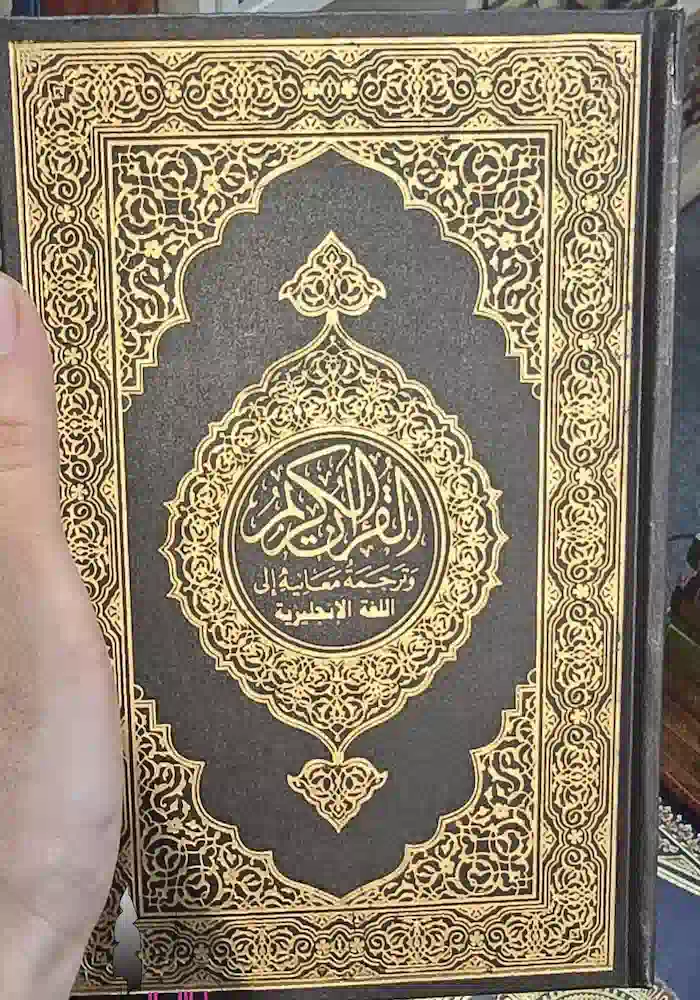 القرآن الكريم
وَتَرجَمَة مَعَانِيه إلى
اللغة الإنجليزية